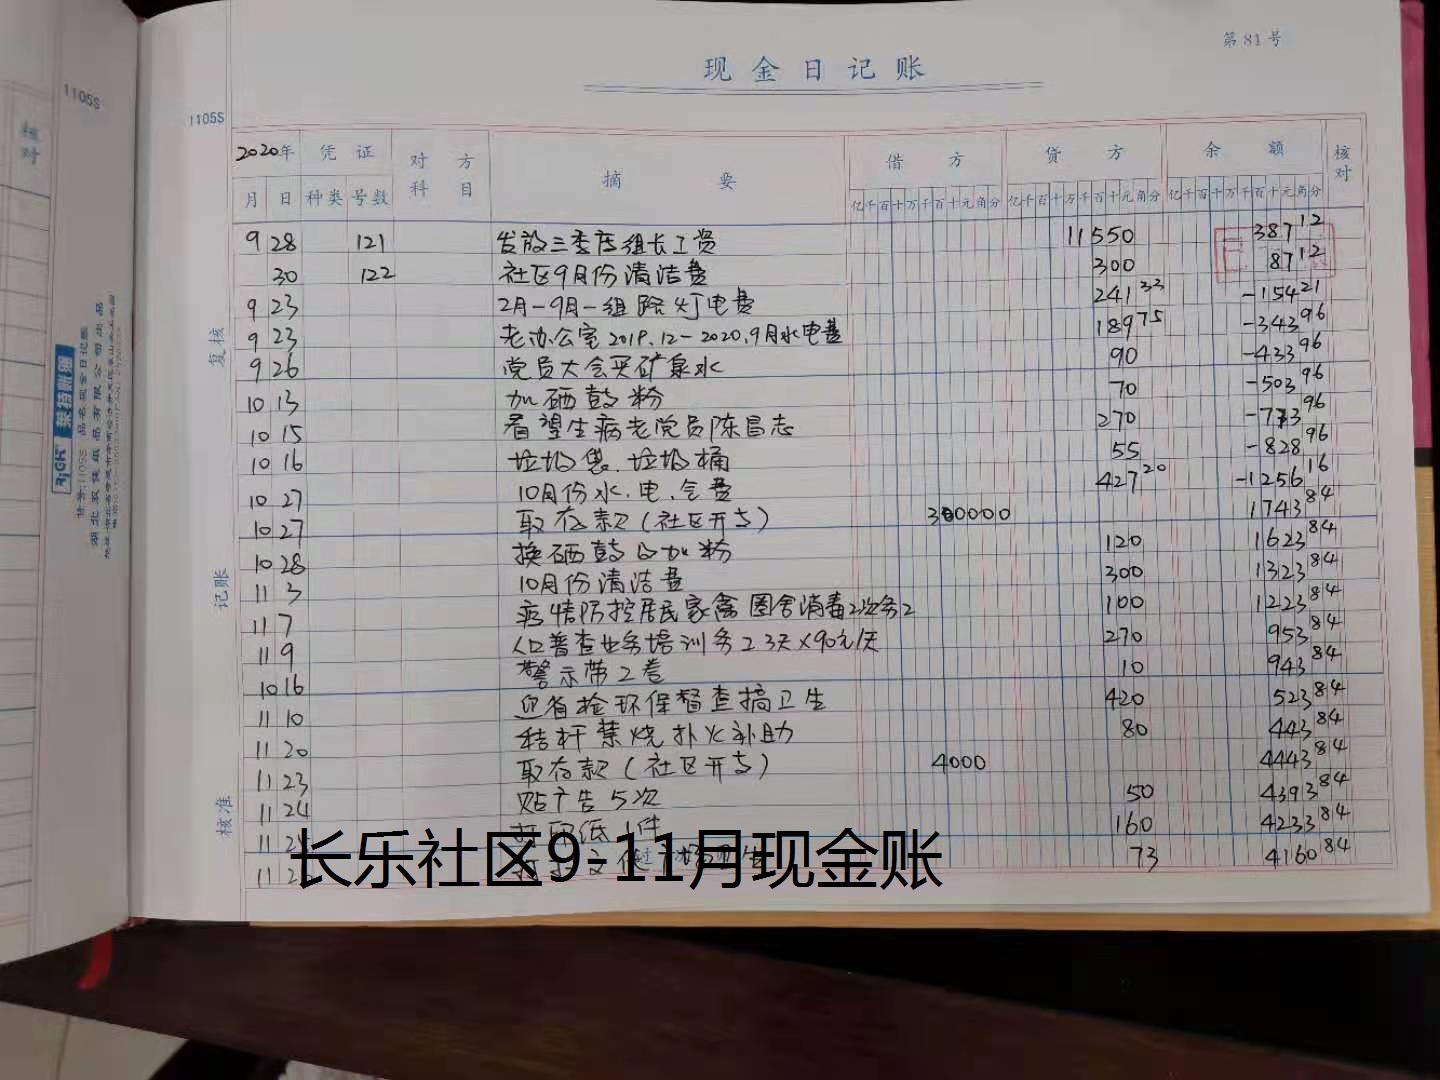 第 81 号
现金日记账
1105S
1105S
核对
2020年 凭证 对方科目 摘要 借方 贷方 余额 核对
月 日 种类 号数 亿千百十万千百十元角分 亿千百十万千百十元角分 亿千百十万千百十元角分
9 28 121 发放三委店组长工资 11550 387 12
30 122 社区9月份清洁费 300 87 12
9 23 2月-9月-组路灯电费 241 33 -154 21
9 23 老办公室2019.12-2020.9月水电费 189 75 -343 96
9 26 党员大会买矿泉水 90 -433 96
10 13 加硒鼓粉 70 -503 96
10 15 看望生病老党员陈昌志 270 -773 96
10 16 垃圾袋、垃圾桶 55 -828 96
10 27 10月份水、电、气费 427 20 -1256 16
10 27 取存款(社区开支) 300000 1743 84
10 28 换硒鼓及加粉 120 1623 84
11 3 10月份清洁费 300 1323 84
11 7 疫情防控居民家禽圈舍消毒2次务2 100 1223 84
11 9 人口普查业务培训务2 3天×90元/天 270 953 84
10 16 警示带2卷 10 943 84
11 10 迎省检环保督查搞卫生 420 523 84
11 20 秸秆禁烧扑火补助 80 443 84
11 23 取存款(社区开支) 4000 4443 84
11 24 贴广告5次 50 4393 84
11 25 打印纸1件 160 4233 84
11 73 4160 84
复核
记账
核准
长乐社区9-11月现金账